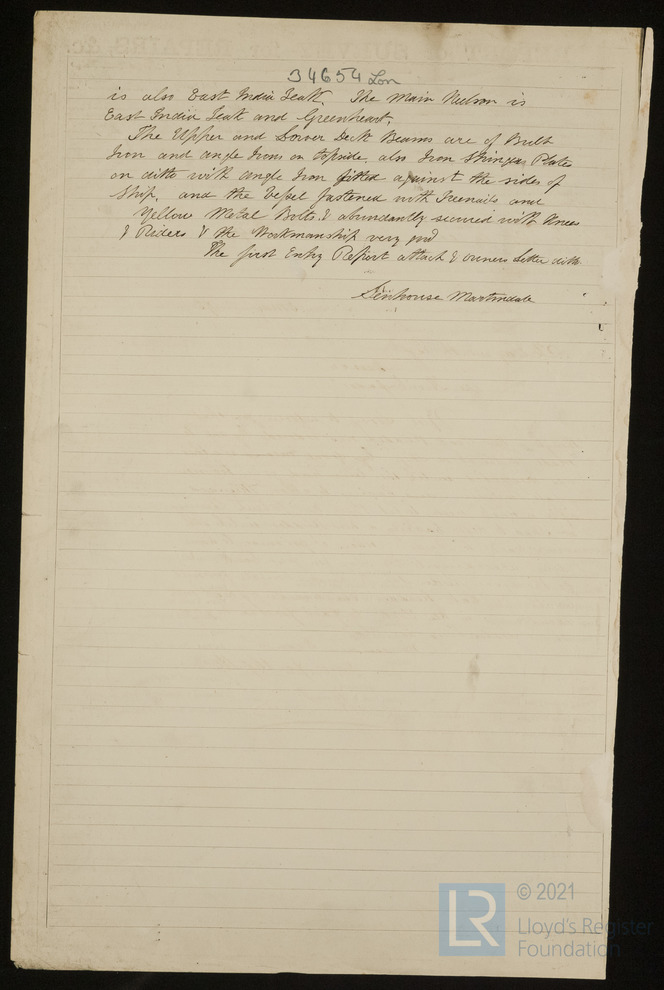 34654 Lon
is also East India Teak. The Main Keelson is
East India Teak and Greenheart,
The Upper and Lower Deck Beams are of Built
Iron and angle Irons on topside, also Iron Stringer Plates
on ditto with angle Iron fitted against the sides of
Ship, and the Vessel fastened with Treenails and
Yellow Metal Bolts. & abundantly secured with Knees
& Riders & the Workmanship very good
The first Entry Report attach & owners Letter ditto
Senhouse Martindale
LR
© 2021
Lloyd's Register
Foundation